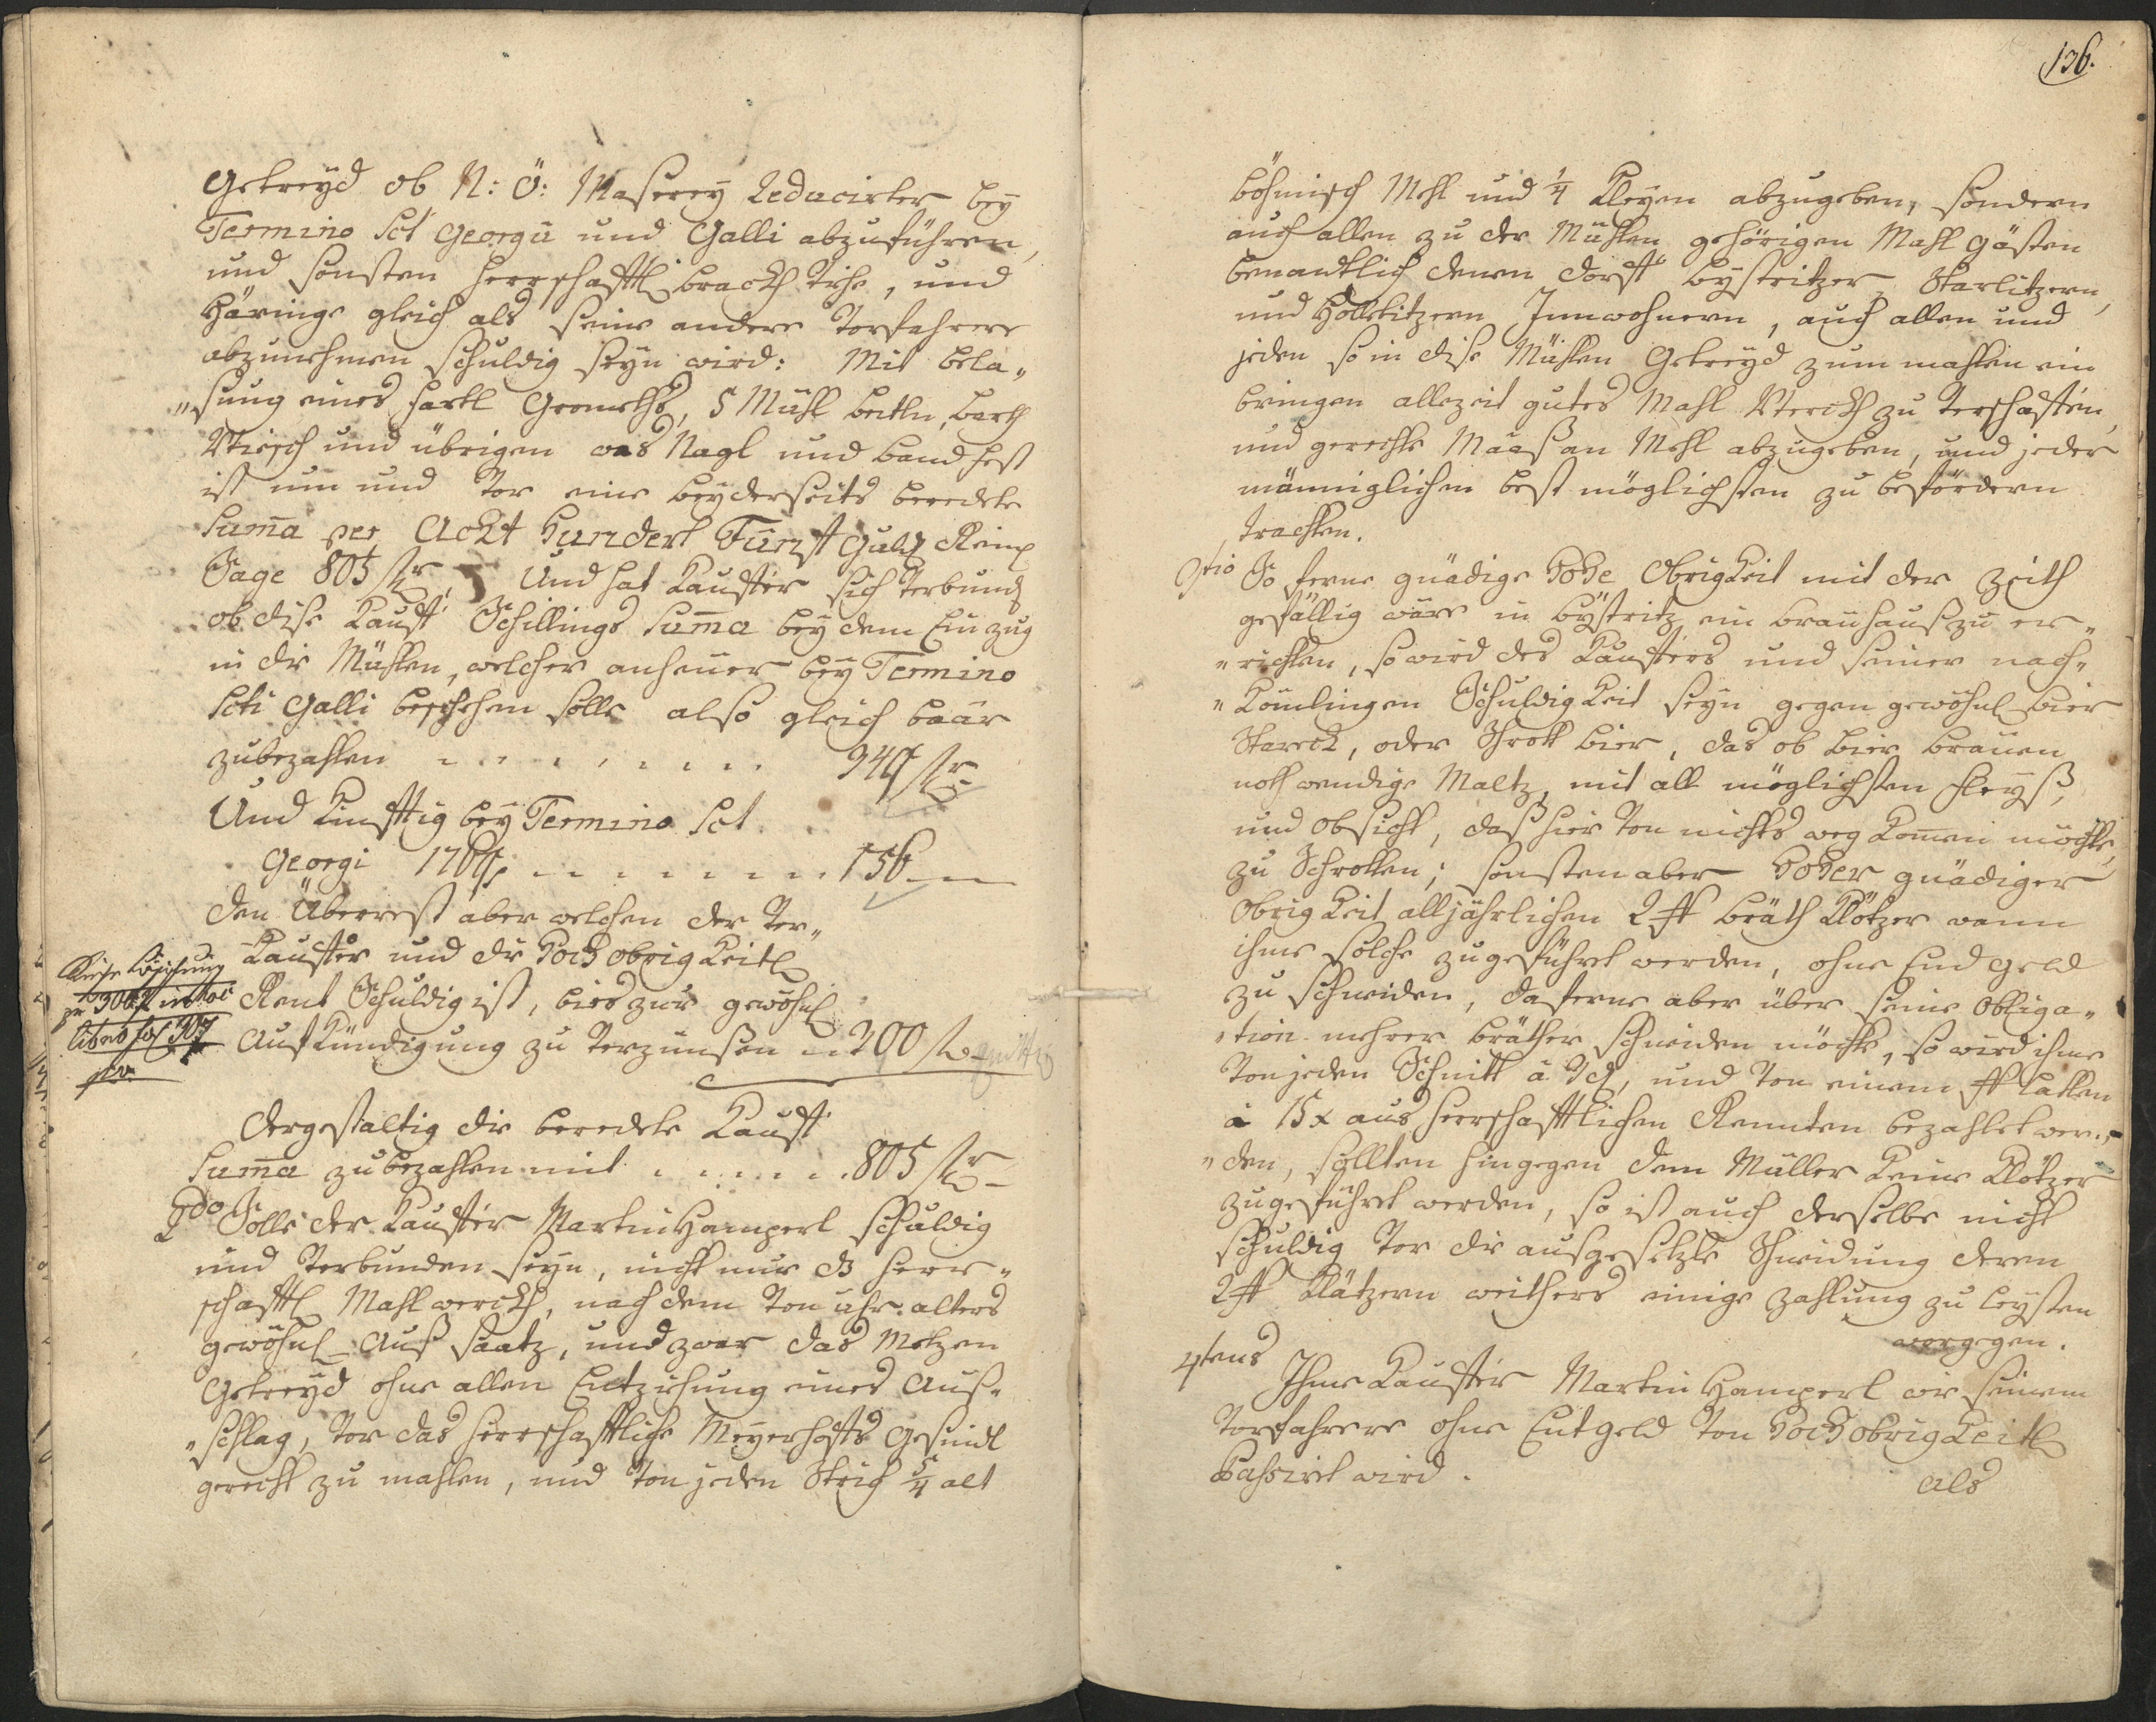 Getreÿd ob N: Ö: Maserey Reducirter beÿ
Termino Sct Georgii und Galli abzuführen,
und sonsten herrschafftl: brackh Vihe, und
Häringe gleich als seine andere Vorfahrere
abzunehmen schuldig seÿn wird: Mit Bela„
„sung eines hartl Gromeths, 5 Mühl beitln, barth
Wisch und übrigen was Nagl und band hest
ist um und vor eine beÿderseits beredete
Suma̅ per Acht Hundert Fünff Guld Reinl
Sage 805 fl r. Und hat Kauffer sich verbund
ob dise Kauff Schillings Suma̅ beÿ dem Einzug
in die Mühlen, welcher anheuer beÿ Termino
Scti Galli beschehen solle also gleich baar
zubezahlen - - - - - - - - 449 fl r
Und Kinfftig beÿ Termino Sct
Georgi 1769 - - - - - - - - 156 —
den Überrest aber welchen der Ver„
Kauffer und die Hochobrigkeitl
Rent Schuldig ist, bies zur gewöhnl
Aufkündigung zu verzünsen - 200 fl
libro fol 307
dergestaltig die beredete Kauff
Suma̅ zubezahlen mit - - - - - 805 fl r
2do Solle der Kauffer Martin Hamperl schuldig
und verbunden seÿn, nicht nur die herr„
schafftl Mahlwerckh, nach dem von uhr alters
gewöhnl Auß saatz, und zwar das Metzen
Getreÿd ohne allen Entziehung eines Auß„
„schlag, vor das herrschafftliche Meÿerhoffs Gesindl
gerecht zu mahlen, und von jeden Strich 5/4 alt
136.
böhmisch Mehl und 1/4 Kleÿen abzugeben, sondern
auch allen zu der Mühlen gehörigen Mahl Gästen
benandtlich denen dorff Bÿstritzer, Starlitzern,
und Hollkitzern Innwohnern, auch allen und
jeden so in dise Mühlen Getreÿd zum mahlen ein
bringen allezeit gutes Mahl Werckh zu verschaffen,
und gerechte Maaß an Mehl abzugeben, und jeder
männiglichen best möglichsten zu befördern
trachten.
3tio So ferne gnädige Hohe Obrigkeit mit der Zeith
gefällig wäre in Bÿstritz ein brauhauß zu er„
„richten, so wird des Kauffers und seiner nach„
„Kömlingen Schuldigkeit seÿn gegen gewöhnl bier
Starck, oder Schrott bier, das ob bier brauen
nothwendige Maltz, mit all möglichsten fleÿß,
und obsicht, daß hier von nichts weg Komen möchte,
zu Schrotten; sonsten aber Hoher gnädiger
Obrigkeit alljährlichen 2 ß bräth Klötzer wann
ihme solche zugeführet werden, ohne End Geld
zu schneiden, daferne aber über seine Obliga„
„tion mehrer bräther schneiden möchte, so wird ihme
von jeden Schnitt à 3 d, und von einem ß Latten
à 15 x aus herrschafftlichen Rennten bezahlet wer„
„den, sollten hingegen dem Müller Keine Klötzer
zugeführet werden, so ist auch derselbe nicht
schuldig vor die ausgesetzte Schneidung deren
2 ß Klätzern weithers einige Zahlung zu leÿsten
worgegen.
4tens Ihme Kauffer Martin Hamperl wie seinem
Vorfahrere ohne Entgeld von Hochobrigkeitl
Passiret wird.
als